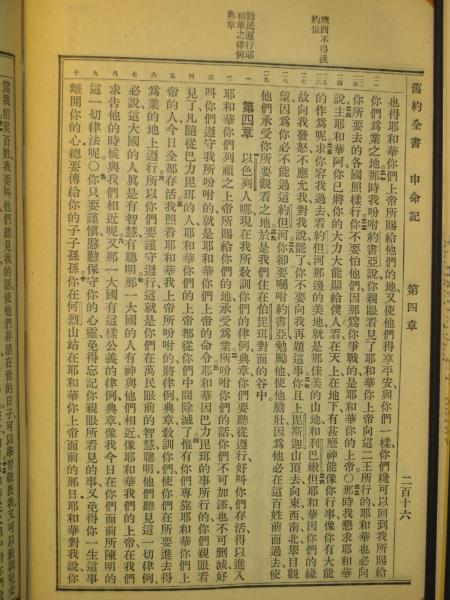 舊約全書 申命記 第四章 二百十六
勸民遵行耶
和華之律例
典章
也得耶和華你們上帝所賜給他們的地又使他們得享平安與你們一樣你們纔可以回到我所賜給
你們爲業之地那時我吩咐約書亞說你親眼看見了耶和華你上帝向這二王所行的耶和華也必向
你所要去的各國照樣行你不要怕他們因那爲你爭戰的是耶和華你的上帝○那時我懇求耶和華
說主耶和華阿你已將你的大力大能顯給僕人看在天上在地下有甚麼神能像你行事像你有大能
的作爲呢求你容我過去看約但河那邊的美地就是那佳美的山地和利巴嫩但耶和華因你們的緣
故向我發怒不應允我對我說罷了你不要向我再題這事你且上毘斯迦山頂去向東西南北舉目觀
望因爲你必不能過這約但河你卻要囑咐約書亞勉勵他使他膽壯因爲他必在這百姓前面過去使
他們承受你所要觀看之地於是我們住在伯毘珥對面的谷中
第四章 以色列人哪現在我所教訓你們的律例典章你們要聽從遵行好叫你們存活得以進入
耶和華你們列祖之上帝所賜給你們的地承受爲業所吩咐你們的話你們不可加添也不可刪減好
叫你們遵守我所吩咐的就是耶和華你們上帝的命令耶和華因巴力毘珥的事所行的你們親眼看
見了凡隨從巴力毘珥的人耶和華你們的上帝都從你們中間除滅了惟有你們專靠耶和華你們上
帝的人今日全都存活我照着耶和華我上帝所吩咐的將律例典章教訓你們使你們在所要進去得
爲業的地上遵行所以你們要謹守遵行這就是你們在萬民眼前的智慧聰明他們聽見這一切律例
必說這大國的人眞是有智慧有聰明那一大國的人有神與他們相近像耶和華我們的上帝在我們
求告他的時候與我們相近呢又那一大國有這樣公義的律例典章像我今日在你們面前所陳明的
這一切律法呢○你只要謹愼慇懃保守你的心靈免得忘記你親眼所看見的事又免得你一生這事
離開你的心總要傳給你的子子孫孫你在何烈山站在耶和華你上帝面前的那日耶和華對我說你
爲我招聚百姓我要叫他們聽見我的話使他們存活在世的日子可以學習敬畏我又可以教訓兒女